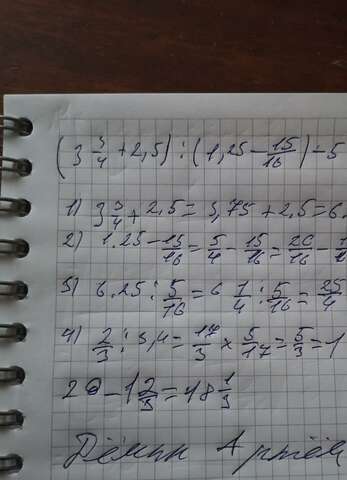 (3 3/4 + 2,5) : (1,25 - 15/16) - 5
1) 3 3/4 + 2.5 = 3,75 + 2.5 = 6.
2) 1.25 - 15/16 = 5/4 - 15/16 = 20/16 - 1
3) 6.25 : 5/16 = 6 1/4 : 5/16 = 25/4
4) 2/3 : 3,4 = 17/3 × 5/17 = 5/3 = 1
20 - 1 2/3 = 18 1/3
Дёмин Артём